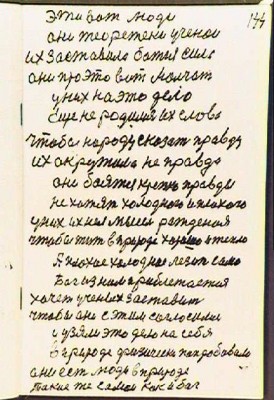 144
эти вот люди
ани теоретени ученои
их заставила божия сила
ани про это вит молчат
у них на это дело
еще не родилис их слова
чтобы народу сказат правду
их окружила не правда
ани баятся крепко правды
не хотят холодного и плохого
у них их нея мысли рождения
чтобы жит в природе хорошо и тепло
А плохое холодное лезит само
Бог из ним приближается
хочет ученых заставит
чтобы ани с этим согласили
и узяли это дело на себя
в природе физически попробовали
ани ест люди в природе
такие же самаи как и бог